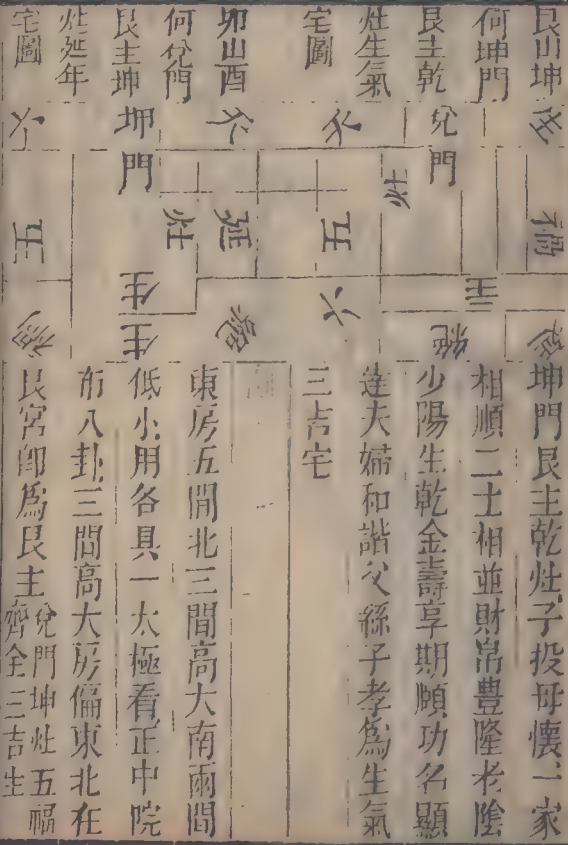 艮山坤
何坤門
艮主乾
灶生氣
宅圖
卯山酉
何兌門
艮主坤
灶延年
宅圖
生
兌門
六
六
坤門
六
禍
灶
五
延
灶
五
生
生
延
絕
六
絕
生
禍
坤門艮主乾灶子投母懷一家
相順二土相並財帛豊隆老陰
少陽生乾金壽享期頤功名顯
達夫婦和諧父慈子孝為生氣
三吉宅
東房五間北三間高大南兩間
低小用各具一太極看正中院
布八卦三間高大房偏東北在
艮宮即為艮主
兌門坤灶五福
齊全三吉生